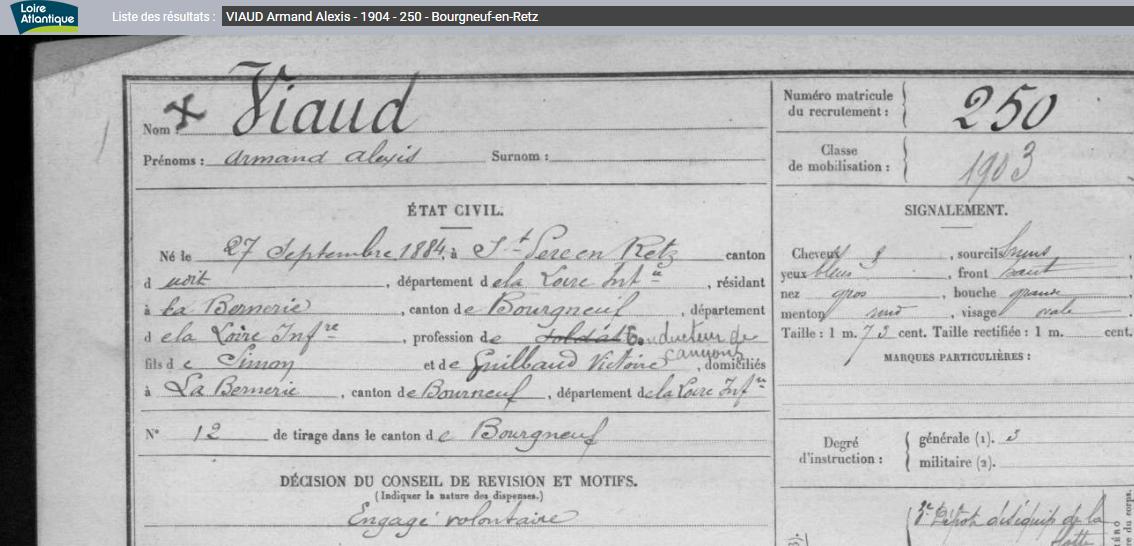 Loire
Atlantique
Liste des résultats : VIAUD Armand Alexis - 1904 - 250 - Bourgneuf-en-Retz
Nom : Viaud
Prénoms : Armand Alexis Surnom :
Numéro matricule
du recrutement : 250
Classe
de mobilisation : 1903
ÉTAT CIVIL.
Né le 27 Septembre 1884, à St Père en Retz canton
d udit , département de la Loire Infre , résidant
à La Bernerie , canton de Bourgneuf , département
de la Loire Infre , profession de Soldat Conducteur de
camions
fils de Simon et de Guilbaud Victoire , domiciliés
à La Bernerie , canton de Bourneuf , département de la Loire Infre
N° 12 de tirage dans le canton de Bourgneuf
DÉCISION DU CONSEIL DE REVISION ET MOTIFS.
(Indiquer la nature des dispenses.)
Engagé volontaire
SIGNALEMENT.
Cheveux , sourcils bruns
yeux bleus , front haut
nez gros , bouche grande
menton rond , visage ovale
Taille : 1 m. 73 cent. Taille rectifiée : 1 m. cent.
MARQUES PARTICULIÈRES :
Degré
d'instruction :
générale (1). 3
militaire (2).
3e Dépôt des équip de la
flotte